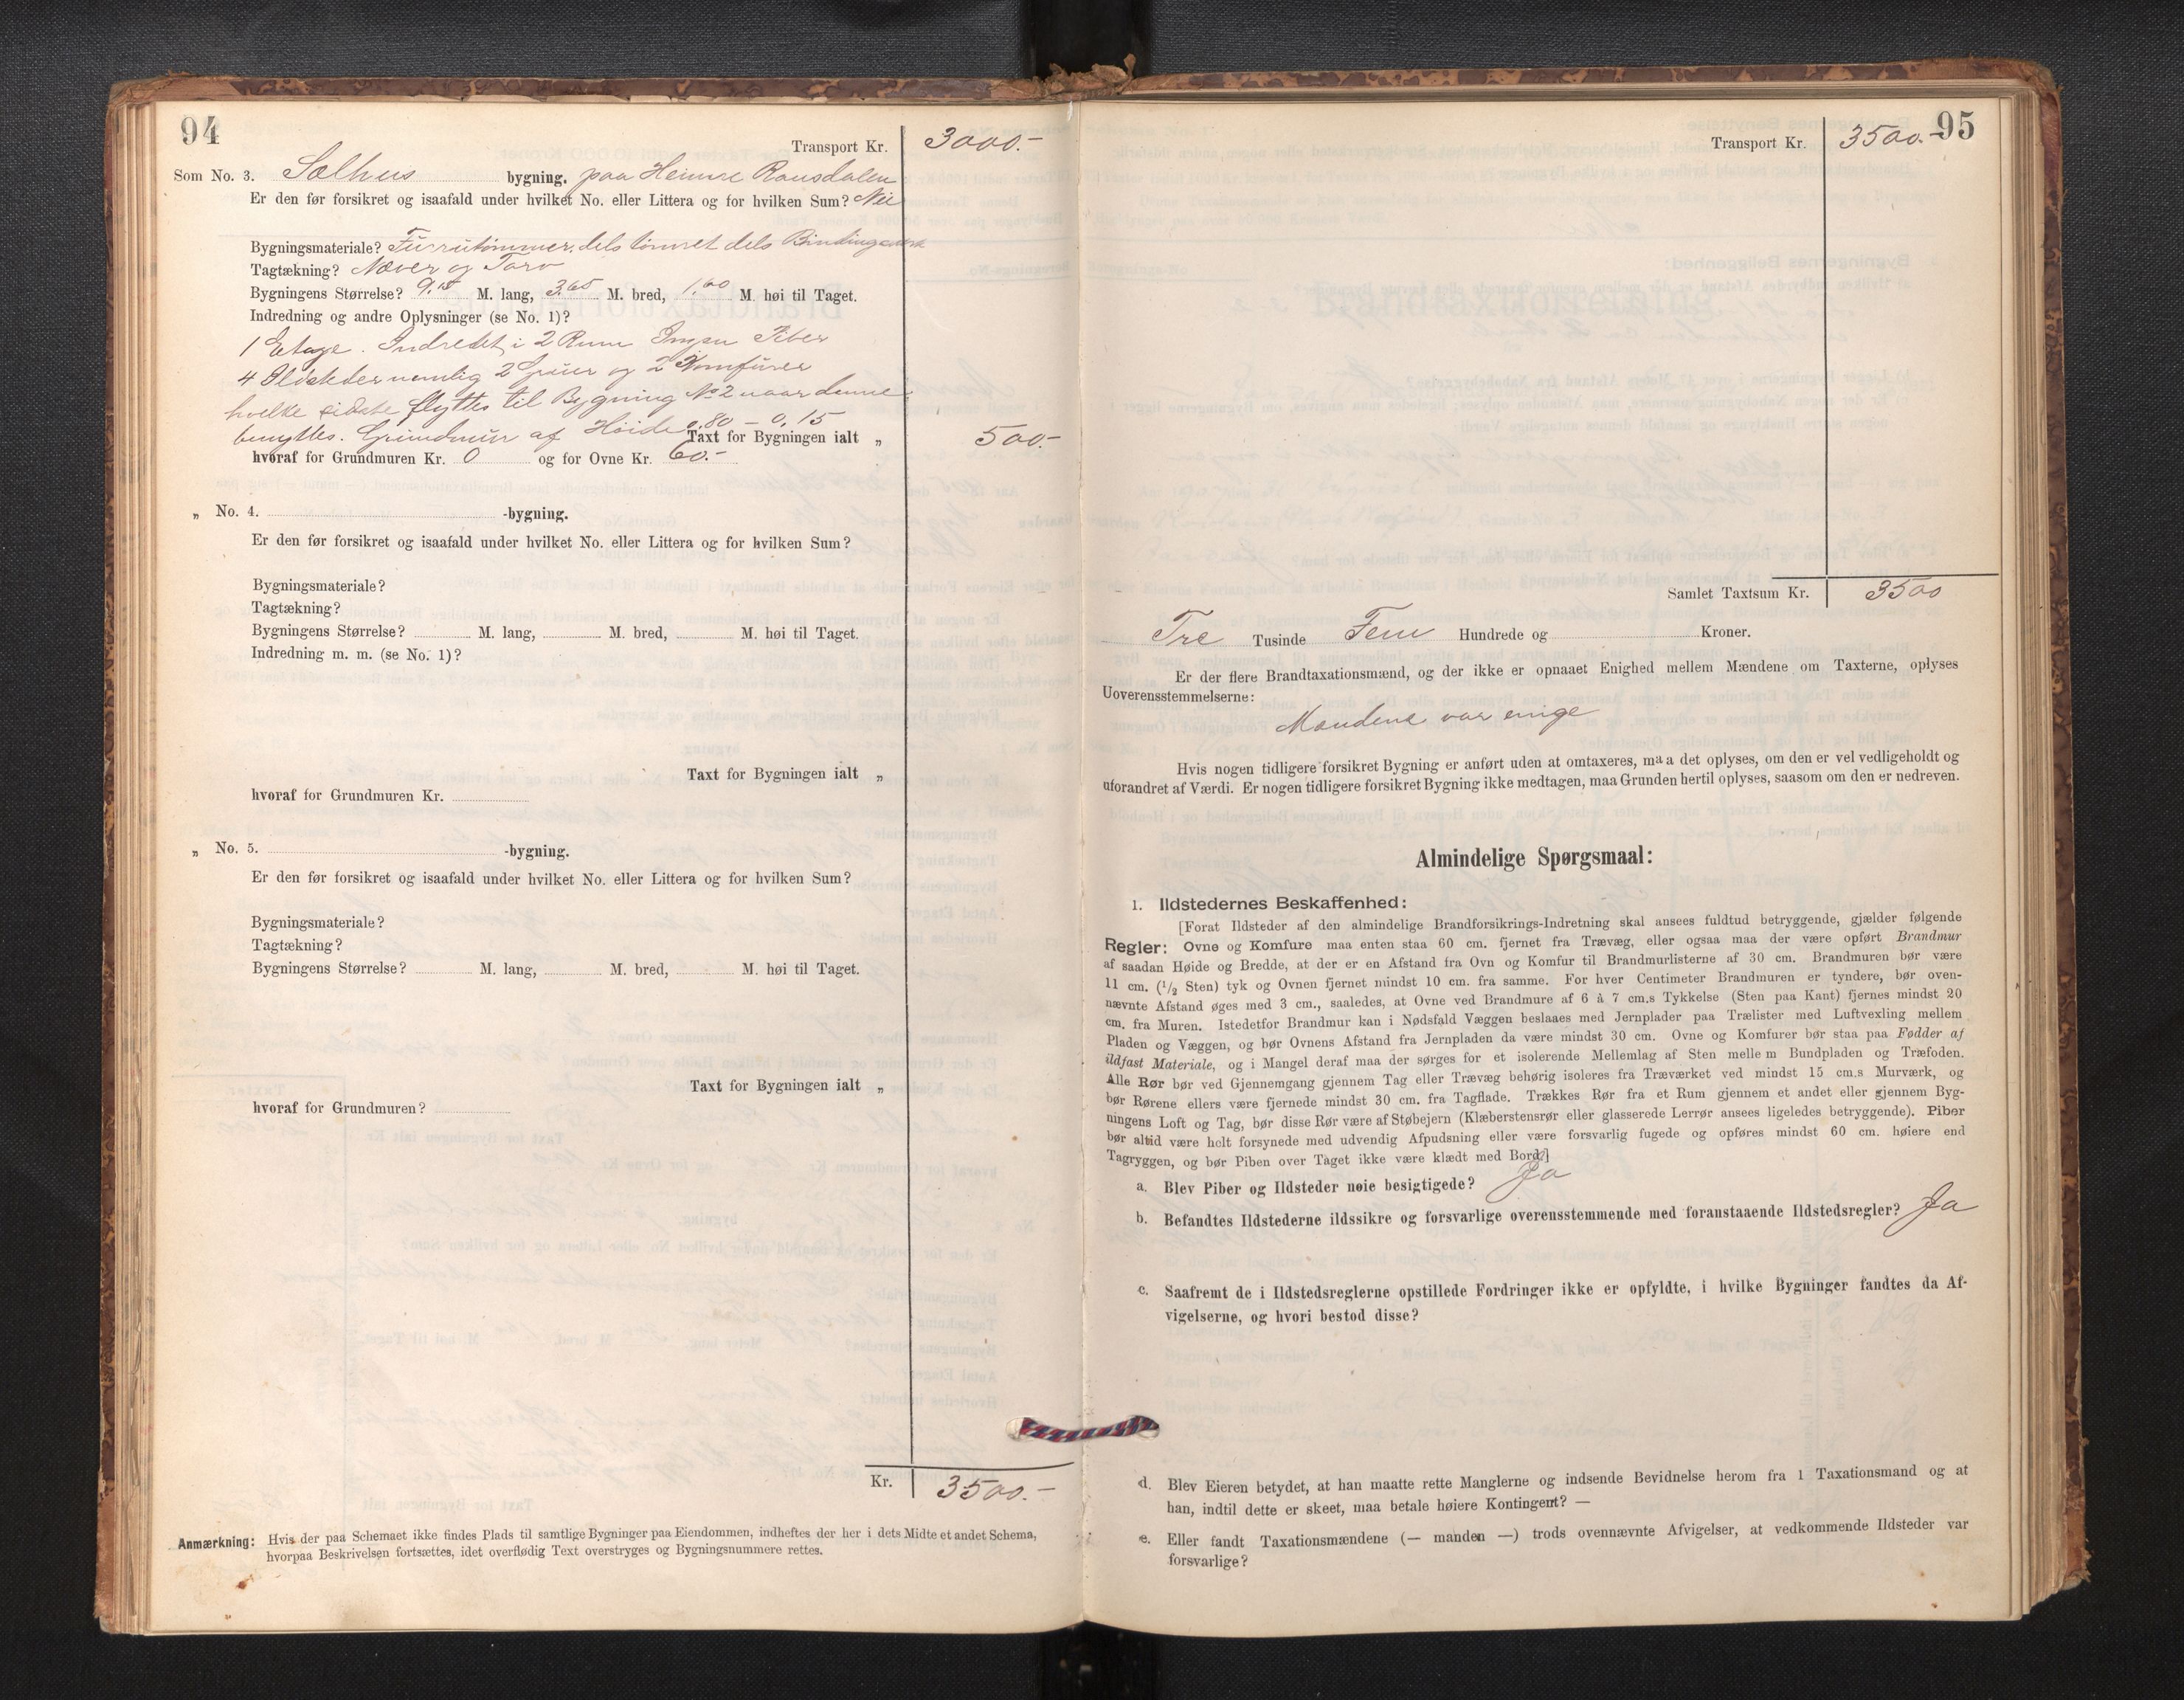 94
Transport Kr. 3000.-
Som No. 3. Sælhus bygning. paa Heimre Rausdalen
Er den før forsikret og isaafald under hvilket No. eller Littera og for hvilken Sum? Nei
Bygningsmateriale? Furrutømmer, dels tømret dels Bindingsverk
Tagtækning? Næver og Torv
Bygningens Størrelse? 9.15 M. lang, 3.65 M. bred, 1.60 M. høi til Taget.
Indredning og andre Oplysninger (se No. 1)?
1 Etage. Indredet i 2 Rum Ingen Piber
4 Ildsteder nemlig 2 Gruer og 2 Komfurer
hvilke sidste flyttes til Bygning No 2 naar denne
benyttes. Grundmur af Høide 0,80 - 0,15
Taxt for Bygningen ialt „ 500.-
hvoraf for Grundmuren Kr. 0 og for Ovne Kr. 60.-
„ No. 4. -bygning.
Er den før forsikret og isaafald under hvilket No. eller Littera og for hvilken Sum?
Bygningsmateriale?
Tagtækning?
Bygningens Størrelse? M. lang, M. bred, M. høi til Taget.
Indredning m. m. (se No. 1)?
Taxt for Bygningen ialt „
hvoraf for Grundmuren Kr.
„ No. 5. -bygning.
Er den før forsikret og isaafald under hvilket No. eller Littera og for hvilken Sum?
Bygningsmateriale?
Tagtækning?
Bygningens Størrelse? M. lang, M. bred, M. høi til Taget.
Taxt for Bygningen ialt „
hvoraf for Grundmuren?
Kr. 3500.-
Anmærkning: Hvis der paa Schemaet ikke findes Plads til samtlige Bygninger paa Eiendommen, indheftes der her i dets Midte et andet Schema,
hvorpaa Beskrivelsen fortsættes, idet overflødig Text overstryges og Bygningsnummere rettes.
95
Transport Kr. 3500.-
Samlet Taxtsum Kr. 3500
Tre Tusinde Fem Hundrede og Kroner.
Er der flere Brandtaxationsmænd, og der ikke er opnaaet Enighed mellem Mændene om Taxterne, oplyses
Uoverensstemmelserne:
Mændene var enige
Hvis nogen tidligere forsikret Bygning er anført uden at omtaxeres, maa det oplyses, om den er vel vedligeholdt og
uforandret af Værdi. Er nogen tidligere forsikret Bygning ikke medtagen, maa Grunden hertil oplyses, saasom om den er nedreven.
Almindelige Spørgsmaal:
1. Ildstedernes Beskaffenhed:
[Forat Ildsteder af den almindelige Brandforsikrings-Indretning skal ansees fuldtud betryggende, gjælder følgende
Regler: Ovne og Komfure maa enten staa 60 cm. fjernet fra Trævæg, eller ogsaa maa der være opført Brandmur
af saadan Høide og Bredde, at der er en Afstand fra Ovn og Komfur til Brandmurlisterne af 30 cm. Brandmuren bør være
11 cm. (1/2 Sten) tyk og Ovnen fjernet mindst 10 cm. fra samme. For hver Centimeter Brandmuren er tyndere, bør oven-
nævnte Afstand øges med 3 cm., saaledes, at Ovne ved Brandmure af 6 à 7 cm.s Tykkelse (Sten paa Kant) fjernes mindst 20
cm. fra Muren. Istedetfor Brandmur kan i Nødsfald Væggen beslaaes med Jernplader paa Trælister med Luftvexling mellem
Pladen og Væggen, og bør Ovnens Afstand fra Jernpladen da være mindst 30 cm. Ovne og Komfurer bør staa paa Fødder af
ildfast Materiale, og i Mangel deraf maa der sørges for et isolerende Mellemlag af Sten mellem Bundpladen og Træfoden.
Alle Rør bør ved Gjennemgang gjennem Tag eller Trævæg behørig isoleres fra Træværket ved mindst 15 cm.s Murværk, og
bør Rørene ellers være fjernede mindst 30 cm. fra Tagflade. Trækkes Rør fra et Rum gjennem et andet eller gjennem Byg-
ningens Loft og Tag, bør disse Rør være af Støbejern (Klæberstensrør eller glasserede Lerrør ansees ligeledes betryggende). Piber
bør altid være helt forsynede med udvendig Afpudsning eller være forsvarlig fugede og opføres mindst 60 cm. høiere end
Tagryggen, og bør Piben over Taget ikke være klædt med Bord.]
a. Blev Piber og Ildsteder nøie besigtigede? Ja
b. Befandtes Ildstederne ildssikre og forsvarlige overensstemmende med foranstaaende Ildstedsregler? Ja
c. Saafremt de i Ildstedsreglerne opstillede Fordringer ikke er opfyldte, i hvilke Bygninger fandtes da Af-
vigelserne, og hvori bestod disse?
d. Blev Eieren betydet, at han maatte rette Manglerne og indsende Bevidnelse herom fra 1 Taxationsmand og at
han, indtil dette er skeet, maa betale høiere Kontingent? —
e. Eller fandt Taxationsmændene (— manden —) trods ovennævnte Afvigelser, at vedkommende Ildsteder var
forsvarlige?